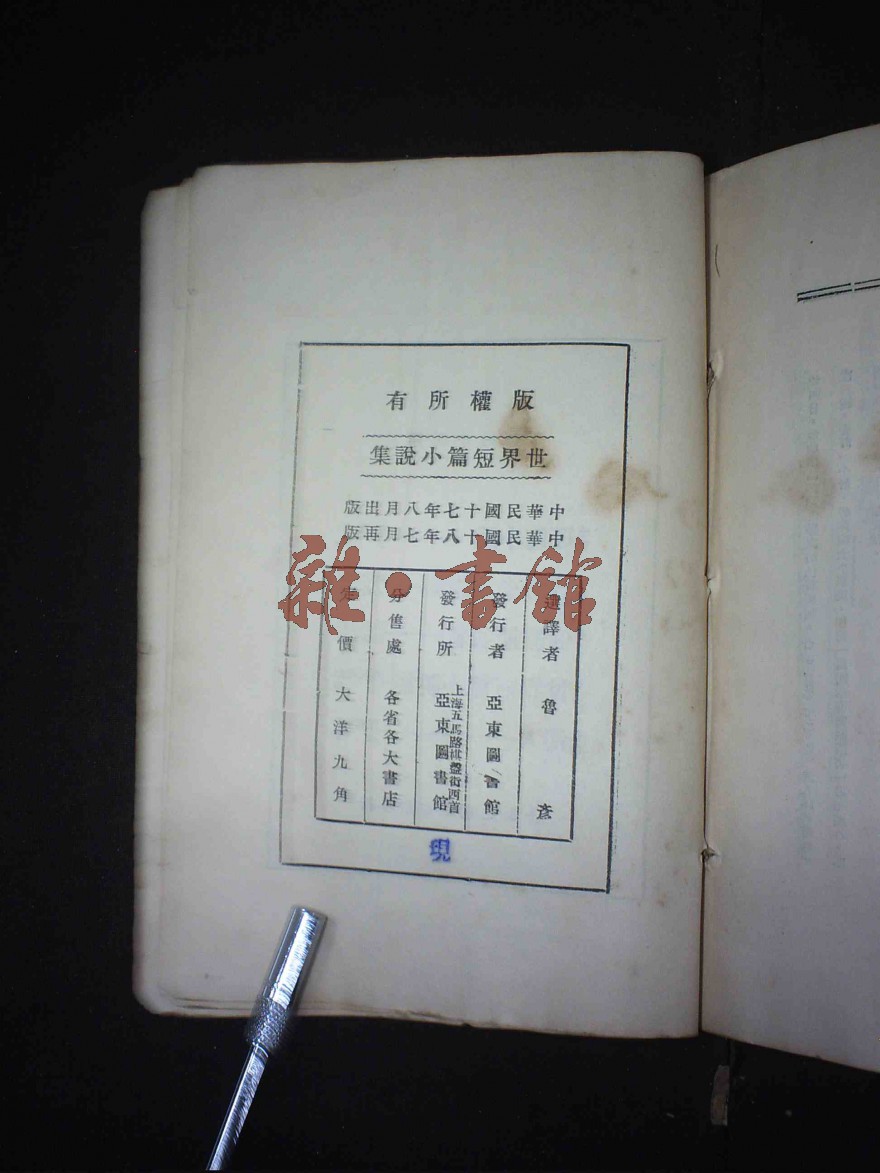 版權所有
世界短篇小說集
中華民國十七年八月出版
中華民國十八年七月再版
選譯者 魯彥
發行者 亞東圖書館
發行所 上海五馬路棋盤街西首 亞東圖書館
分售處 各省各大書店
定價 大洋九角
雜·書館